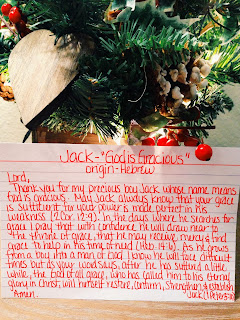 Jack - "God is Gracious"
origin - Hebrew
Lord,
Thank you for my precious boy Jack whose name means
God is gracious. May Jack always know that your grace
is sufficient, for your power is made perfect in his
weakness (2 Cor. 12:9). In the days where he searches for
grace I pray that with confidence he will draw near to
the throne of grace, that he may receive mercy & find
grace to help in his time of need (Heb. 4:16). As he grows
from a boy into a man of God I know he will face difficult
times but as your word says, after he has suffered a little
while, the God of all grace, who has called him to his eternal
glory in Christ, will himself restore, confirm, strengthen, & establish
Jack. (1 Peter 5:10)
Amen.